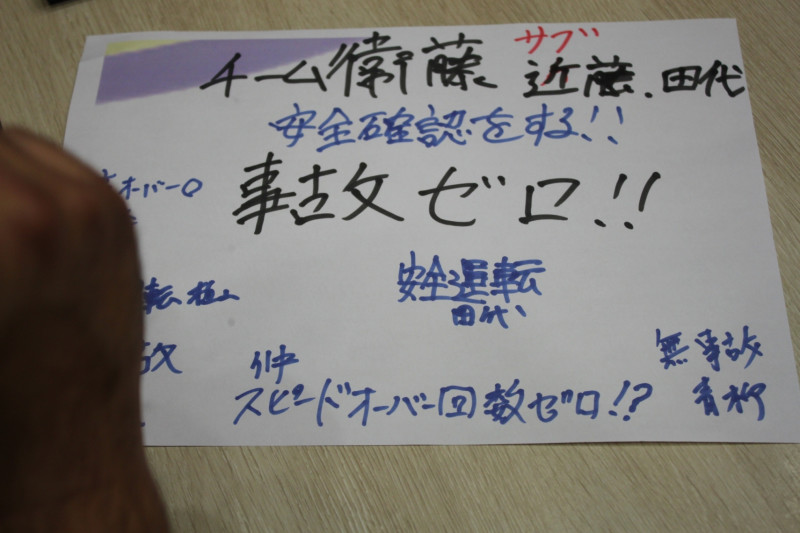 チーム衛藤 サブ 近藤、田代
安全確認をする!!
オーバー0
事故ゼロ!!
安全運転
田代
転
故
仲
スピードオーバー回数ゼロ!?
無事故
青柳